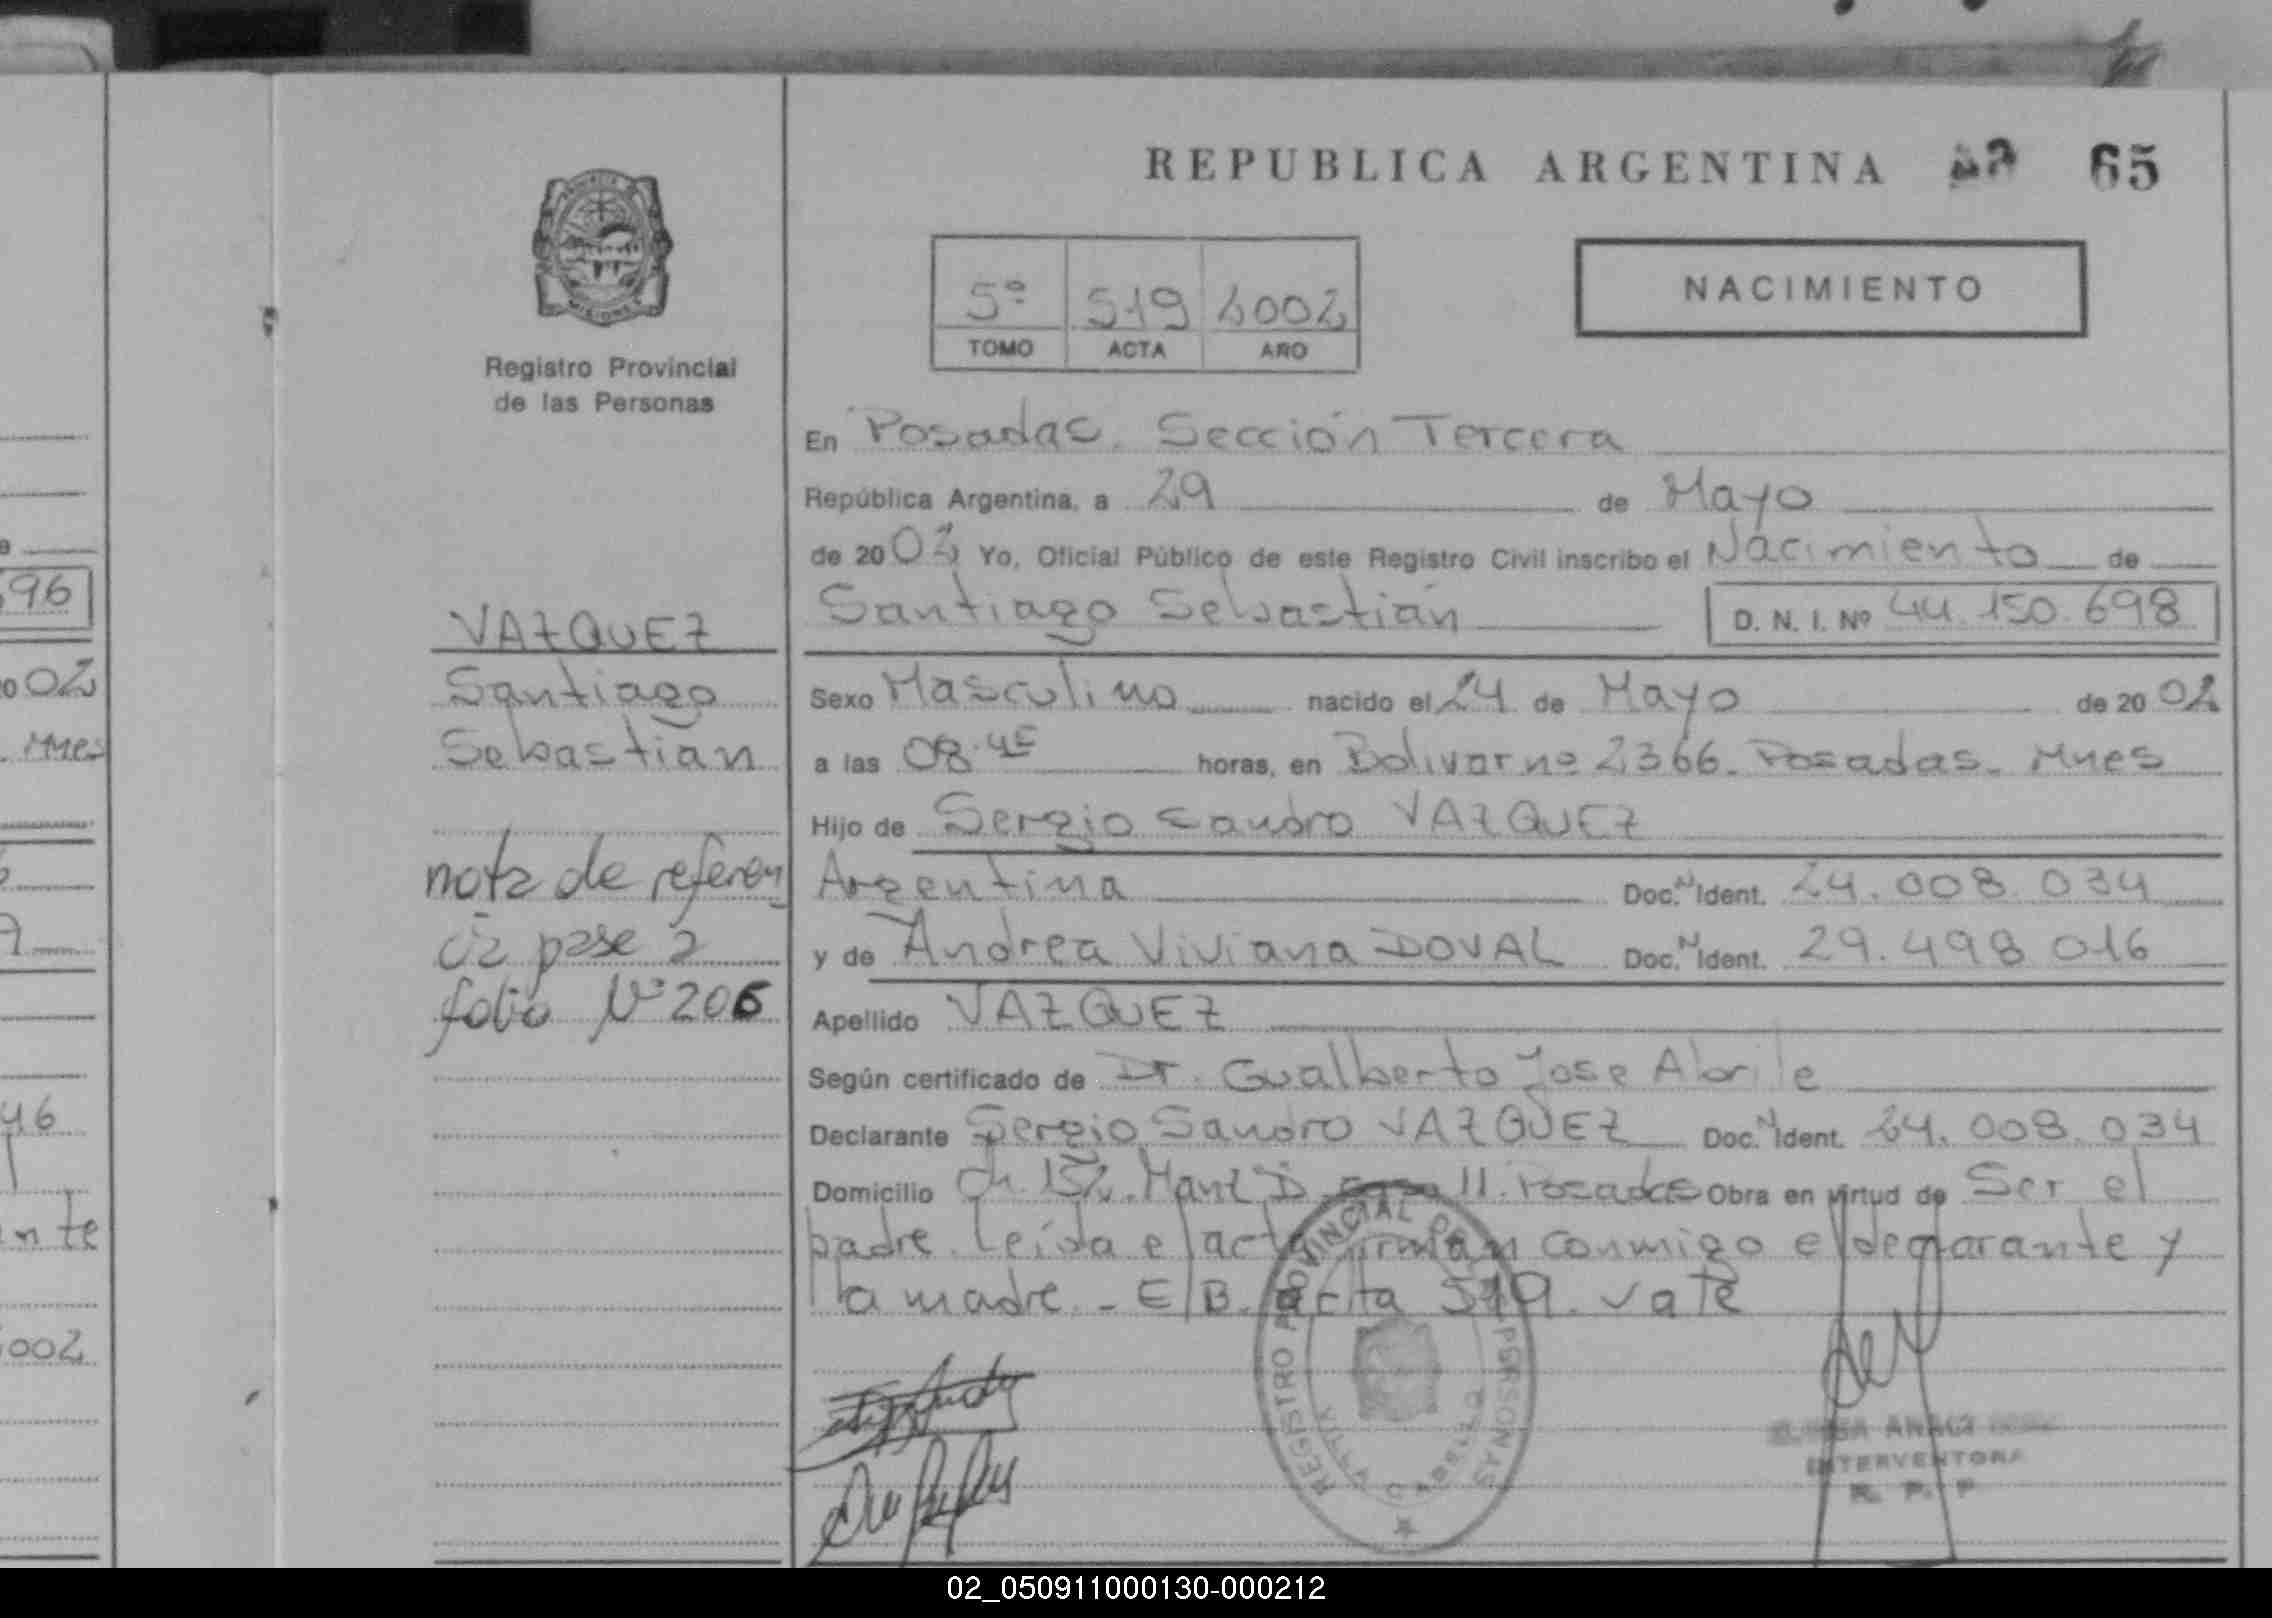 REPUBLICA ARGENTINA 65
5º 519 2002
TOMO ACTA AÑO
NACIMIENTO
MISIONES
Registro Provincial
de las Personas
VAZQUEZ
Santiago
Sebastián
nota de referen
cia pase a
folio Nº 206
En Posadas. Sección Tercera
República Argentina, a 29 de Mayo
de 2002 Yo, Oficial Público de este Registro Civil inscribo el Nacimiento de
Santiago Sebastián D. N. I. Nº 44.150.698
Sexo Masculino nacido el 24 de Mayo de 2002
a las 08.45 horas, en Bolivar nº 2366. Posadas. Mnes
Hijo de Sergio Sandro VAZQUEZ
Argentina Doc. N Ident. 24.008.034
y de Andrea Viviana DOVAL Doc. N Ident. 29.498.016
Apellido VAZQUEZ
Según certificado de Dr. Gualberto Jose Abrile
Declarante Sergio Sandro VAZQUEZ Doc. N Ident. 24.008.034
Domicilio Ch. 152. Manz D. 11. Posadas Obra en virtud de Ser el
padre. Leída el acta firman conmigo el declarante y
la madre. - E/B. acta 519. vale
REGISTRO PROVINCIAL DE LAS PERSONAS
VILLA CABELLO
INTERVENTORA
R. P. P
96
2002
Mnes
46
nte
2002
02_050911000130-000212